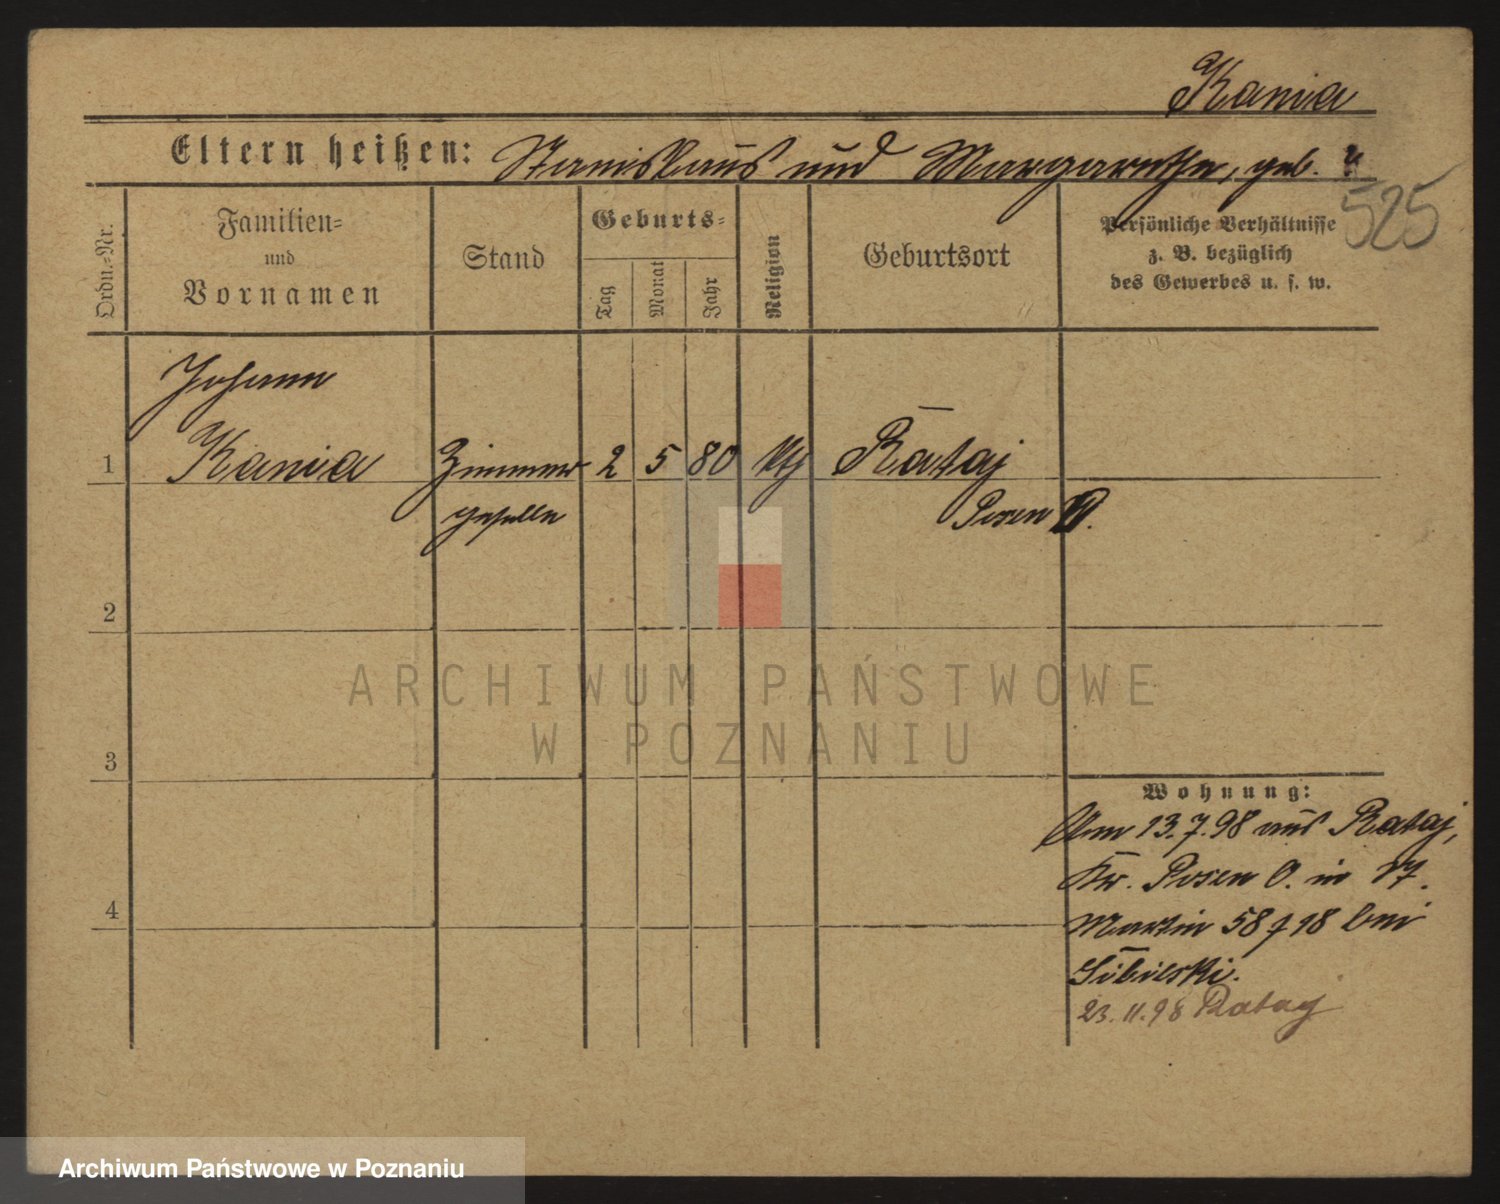 Kania
Eltern heißen: Stanislaus und Margarethe, geb. ?
525
Ordn.-Nr.
Familien-
und
Vornamen
Stand
Geburts-
Tag
Monat
Jahr
Religion
Geburtsort
Persönliche Verhältnisse
z. B. bezüglich
des Gewerbes u. s. w.
Johann
1 Kania Zimmer 2 5 80 kth Rataj
geselle Posen O.
2
ARCHIWUM PAŃSTWOWE
W POZNANIU
3
Wohnung:
Am 13.7.98 aus Rataj,
Kr. Posen O. in St.
4
Martin 58 f 18 bei
Sibilski.
23.11.98 Rataj
Archiwum Państwowe w Poznaniu